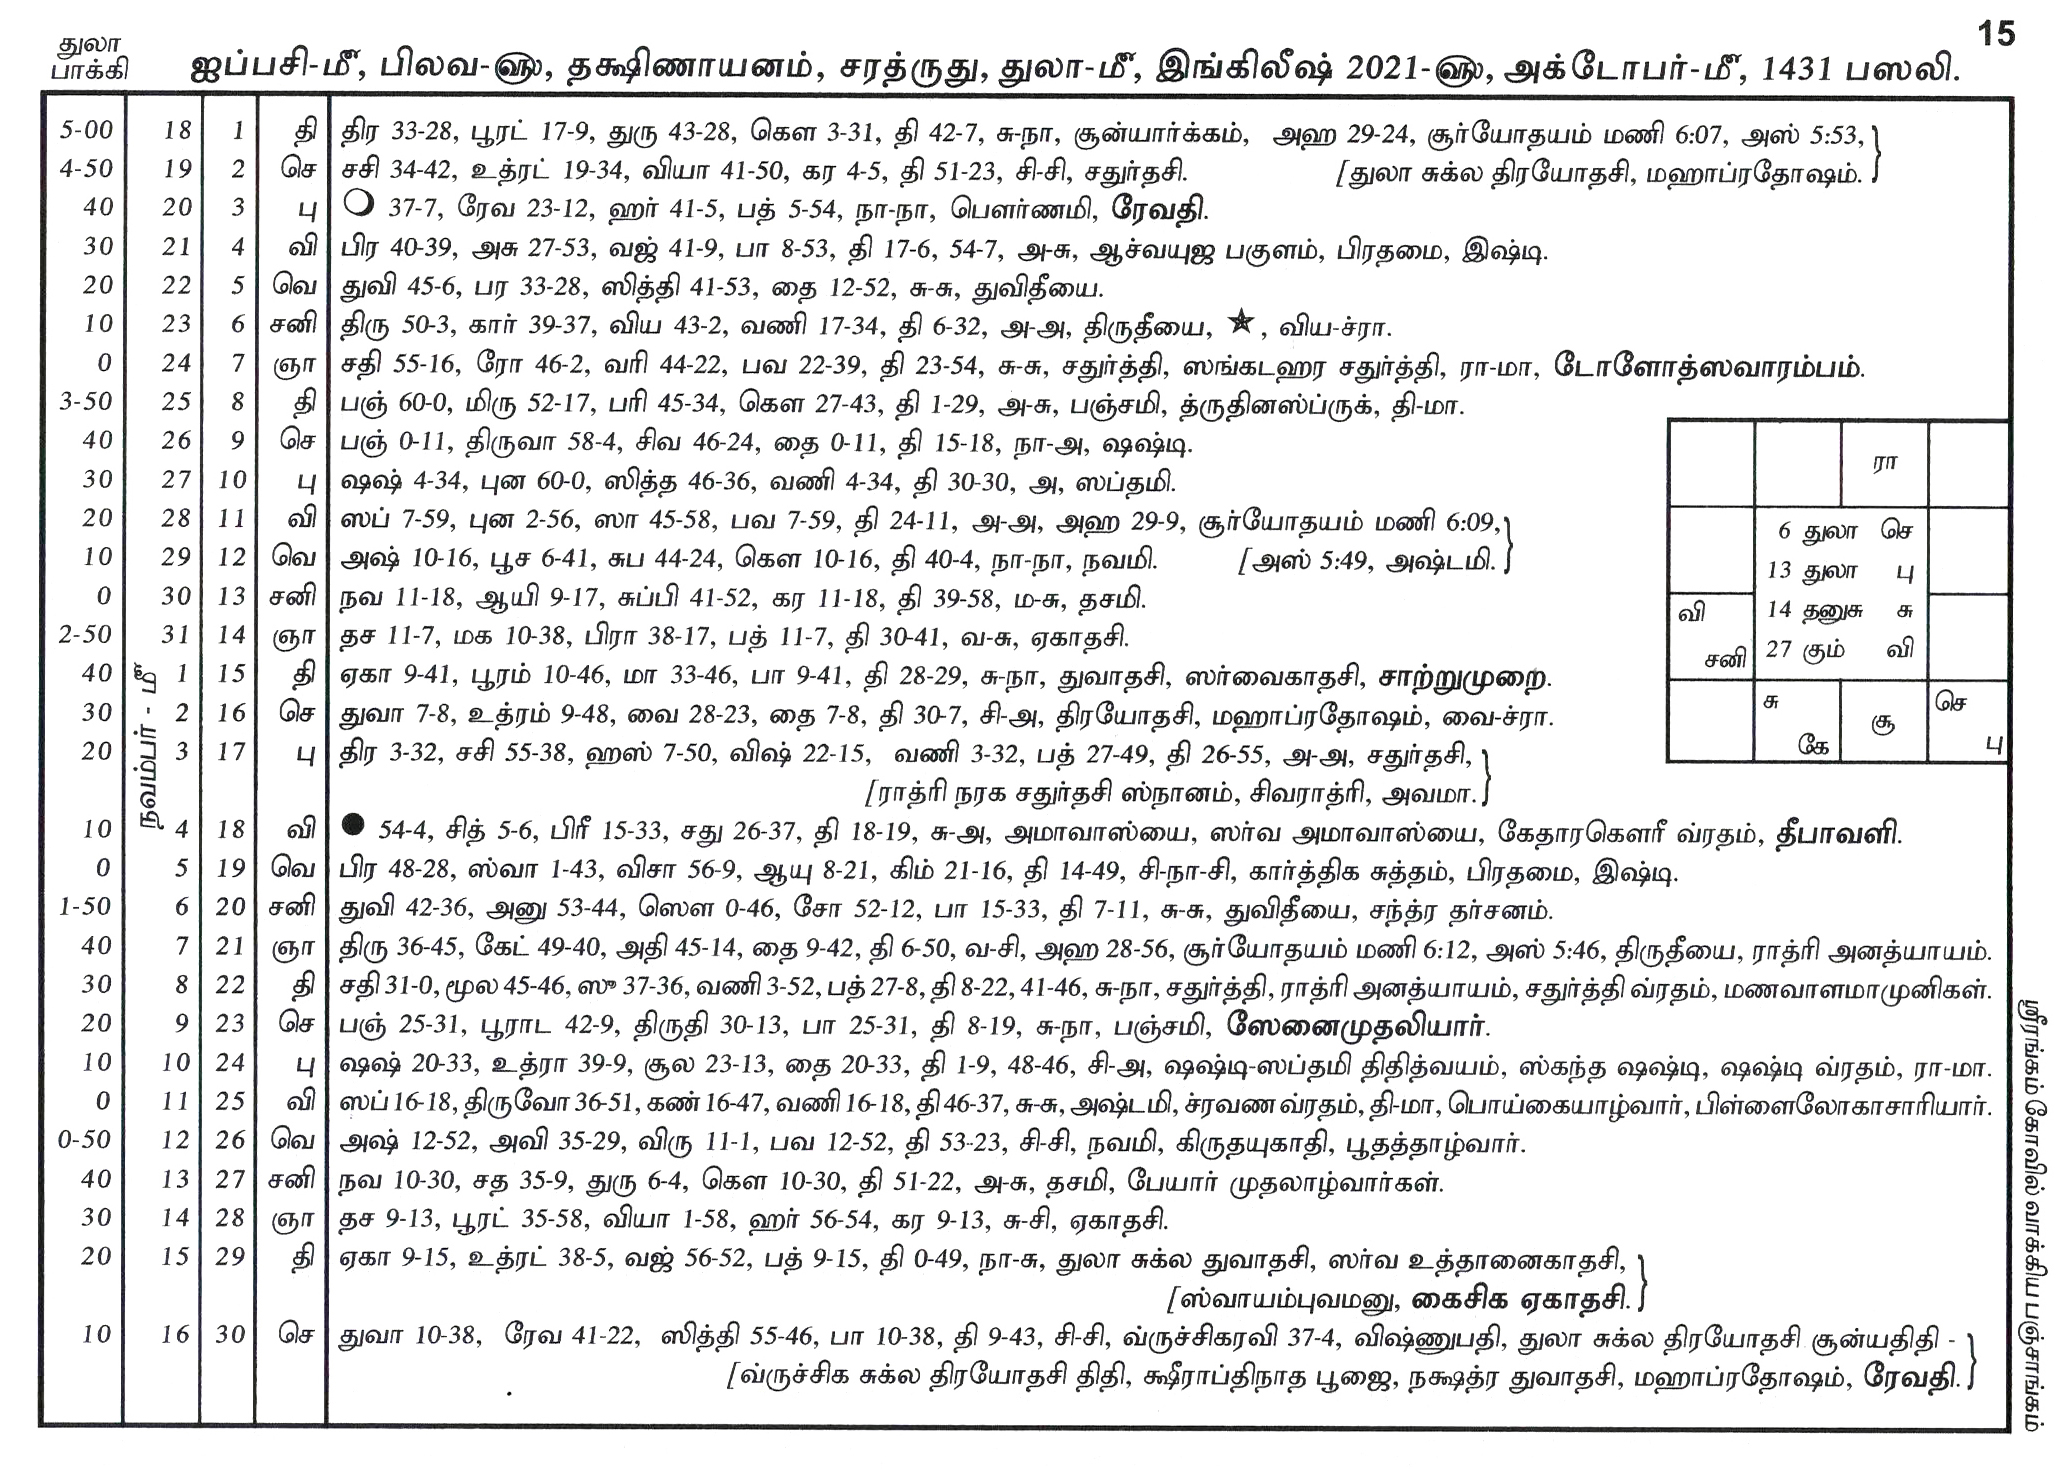 15
துலா
பாக்கி
ஐப்பசி-மீ, பிலவ-௵, தக்ஷிணாயனம், சரத்ருது, துலா-மீ, இங்கிலீஷ் 2021-௵, அக்டோபர்-மீ, 1431 பஸலி.
5-00 18 1 தி திர 33-28, பூரட் 17-9, துரு 43-28, கௌ 3-31, தி 42-7, சு-நா, சூன்யார்க்கம், அஹ 29-24, சூர்யோதயம் மணி 6:07, அஸ் 5:53,}
4-50 19 2 செ சசி 34-42, உத்ரட் 19-34, வியா 41-50, கர 4-5, தி 51-23, சி-சி, சதுர்தசி. [துலா சுக்ல திரயோதசி, மஹாப்ரதோஷம்.
40 20 3 பு 37-7, ரேவ 23-12, ஹர் 41-5, பத் 5-54, நா-நா, பௌர்ணமி, ரேவதி.
30 21 4 வி பிர 40-39, அசு 27-53, வஜ் 41-9, பா 8-53, தி 17-6, 54-7, அ-சு, ஆச்வயுஜ பகுளம், பிரதமை, இஷ்டி.
20 22 5 வெ துவி 45-6, பர 33-28, ஸித்தி 41-53, தை 12-52, சு-சு, துவிதீயை.
10 23 6 சனி திரு 50-3, கார் 39-37, விய 43-2, வணி 17-34, தி 6-32, அ-அ, திருதீயை, ★, விய-ச்ரா.
0 24 7 ஞா சதி 55-16, ரோ 46-2, வரி 44-22, பவ 22-39, தி 23-54, சு-சு, சதுர்த்தி, ஸங்கடஹர சதுர்த்தி, ரா-மா, டோளோத்ஸவாரம்பம்.
3-50 25 8 தி பஞ் 60-0, மிரு 52-17, பரி 45-34, கௌ 27-43, தி 1-29, அ-சு, பஞ்சமி, த்ருதினஸ்ப்ருக், தி-மா.
40 26 9 செ பஞ் 0-11, திருவா 58-4, சிவ 46-24, தை 0-11, தி 15-18, நா-அ, ஷஷ்டி.
30 27 10 பு ஷஷ் 4-34, புன 60-0, ஸித்த 46-36, வணி 4-34, தி 30-30, அ, ஸப்தமி.
20 28 11 வி ஸப் 7-59, புன 2-56, ஸா 45-58, பவ 7-59, தி 24-11, அ-அ, அஹ 29-9, சூர்யோதயம் மணி 6:09,}
10 29 12 வெ அஷ் 10-16, பூச 6-41, சுப 44-24, கௌ 10-16, தி 40-4, நா-நா, நவமி. [அஸ் 5:49, அஷ்டமி.
0 30 13 சனி நவ 11-18, ஆயி 9-17, சுப்பி 41-52, கர 11-18, தி 39-58, ம-சு, தசமி.
2-50 31 14 ஞா தச 11-7, மக 10-38, பிரா 38-17, பத் 11-7, தி 30-41, வ-சு, ஏகாதசி.
நவம்பர் - மீ
40 1 15 தி ஏகா 9-41, பூரம் 10-46, மா 33-46, பா 9-41, தி 28-29, சு-நா, துவாதசி, ஸர்வைகாதசி, சாற்றுமுறை.
30 2 16 செ துவா 7-8, உத்ரம் 9-48, வை 28-23, தை 7-8, தி 30-7, சி-அ, திரயோதசி, மஹாப்ரதோஷம், வை-ச்ரா.
20 3 17 பு திர 3-32, சசி 55-38, ஹஸ் 7-50, விஷ் 22-15, வணி 3-32, பத் 27-49, தி 26-55, அ-அ, சதுர்தசி,}
[ராத்ரி நரக சதுர்தசி ஸ்நானம், சிவராத்ரி, அவமா.
10 4 18 வி 54-4, சித் 5-6, பிரீ 15-33, சது 26-37, தி 18-19, சு-அ, அமாவாஸ்யை, ஸர்வ அமாவாஸ்யை, கேதாரகௌரீ வ்ரதம், தீபாவளி.
0 5 19 வெ பிர 48-28, ஸ்வா 1-43, விசா 56-9, ஆயு 8-21, கிம் 21-16, தி 14-49, சி-நா-சி, கார்த்திக சுத்தம், பிரதமை, இஷ்டி.
1-50 6 20 சனி துவி 42-36, அனு 53-44, ஸௌ 0-46, சோ 52-12, பா 15-33, தி 7-11, சு-சு, துவிதீயை, சந்த்ர தர்சனம்.
40 7 21 ஞா திரு 36-45, கேட் 49-40, அதி 45-14, தை 9-42, தி 6-50, வ-சி, அஹ 28-56, சூர்யோதயம் மணி 6:12, அஸ் 5:46, திருதீயை, ராத்ரி அனத்யாயம்.
30 8 22 தி சதி 31-0, மூல 45-46, ஸு 37-36, வணி 3-52, பத் 27-8, தி 8-22, 41-46, சு-நா, சதுர்த்தி, ராத்ரி அனத்யாயம், சதுர்த்தி வ்ரதம், மணவாளமாமுனிகள்.
20 9 23 செ பஞ் 25-31, பூராட 42-9, திருதி 30-13, பா 25-31, தி 8-19, சு-நா, பஞ்சமி, ஸேனைமுதலியார்.
10 10 24 பு ஷஷ் 20-33, உத்ரா 39-9, சூல 23-13, தை 20-33, தி 1-9, 48-46, சி-அ, ஷஷ்டி-ஸப்தமி திதித்வயம், ஸ்கந்த ஷஷ்டி, ஷஷ்டி வ்ரதம், ரா-மா.
0 11 25 வி ஸப் 16-18, திருவோ 36-51, கண் 16-47, வணி 16-18, தி 46-37, சு-சு, அஷ்டமி, ச்ரவண வ்ரதம், தி-மா, பொய்கையாழ்வார், பிள்ளைலோகாசாரியார்.
0-50 12 26 வெ அஷ் 12-52, அவி 35-29, விரு 11-1, பவ 12-52, தி 53-23, சி-சி, நவமி, கிருதயுகாதி, பூதத்தாழ்வார்.
40 13 27 சனி நவ 10-30, சத 35-9, துரு 6-4, கௌ 10-30, தி 51-22, அ-சு, தசமி, பேயார் முதலாழ்வார்கள்.
30 14 28 ஞா தச 9-13, பூரட் 35-58, வியா 1-58, ஹர் 56-54, கர 9-13, சு-சி, ஏகாதசி.
20 15 29 தி ஏகா 9-15, உத்ரட் 38-5, வஜ் 56-52, பத் 9-15, தி 0-49, நா-சு, துலா சுக்ல துவாதசி, ஸர்வ உத்தானைகாதசி,}
[ஸ்வாயம்புவமனு, கைசிக ஏகாதசி.
10 16 30 செ துவா 10-38, ரேவ 41-22, ஸித்தி 55-46, பா 10-38, தி 9-43, சி-சி, வ்ருச்சிகரவி 37-4, விஷ்ணுபதி, துலா சுக்ல திரயோதசி சூன்யதிதி -}
[வ்ருச்சிக சுக்ல திரயோதசி திதி, க்ஷீராப்திநாத பூஜை, நக்ஷத்ர துவாதசி, மஹாப்ரதோஷம், ரேவதி.
ரா
6 துலா செ
13 துலா பு
வி 14 தனுசு சு
சனி 27 கும் வி
சு கே சூ செ பு
ஸ்ரீரங்கம் கோவில் வாக்கிய பஞ்சாங்கம்